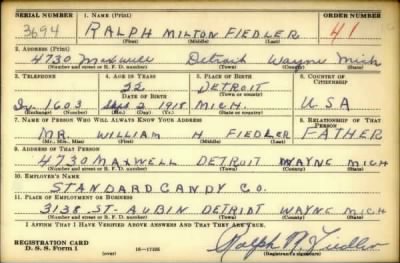 SERIAL NUMBER 1. NAME (Print) ORDER NUMBER
3694 RALPH MILTON FIEDLER 41
(First) (Middle) (Last)
2. ADDRESS (Print)
4730 Maxwell Detroit Wayne Mich
(Number and street or R. F. D. number) (Town) (County) (State)
3. TELEPHONE 4. AGE IN YEARS 5. PLACE OF BIRTH 6. COUNTRY OF CITIZENSHIP
DETROIT
DATE OF BIRTH (Town or county)
1603 Sept. 2 1918 MICH. USA
(Mo.) (Day) (Yr.) (State or country)
7. NAME OF PERSON WHO WILL ALWAYS KNOW YOUR ADDRESS 8. RELATIONSHIP OF THAT PERSON
MR. WILLIAM H FIEDLER FATHER
(Mr., Mrs., Miss) (First) (Middle) (Last)
9. ADDRESS OF THAT PERSON
4730 MAXWELL DETROIT WAYNE MICH
(Number and street or R. F. D. number) (Town) (County) (State)
10. EMPLOYER'S NAME
STANDARD CANDY CO.
11. PLACE OF EMPLOYMENT OR BUSINESS
3138 ST. AUBIN DETROIT WAYNE MICH
(Number and street or R. F. D. number) (Town) (County) (State)
I AFFIRM THAT I HAVE VERIFIED ABOVE ANSWERS AND THAT THEY ARE TRUE.
REGISTRATION CARD
D. S. S. Form 1 (over) 16—17105 Ralph M. Fiedler
(Registrant's signature)